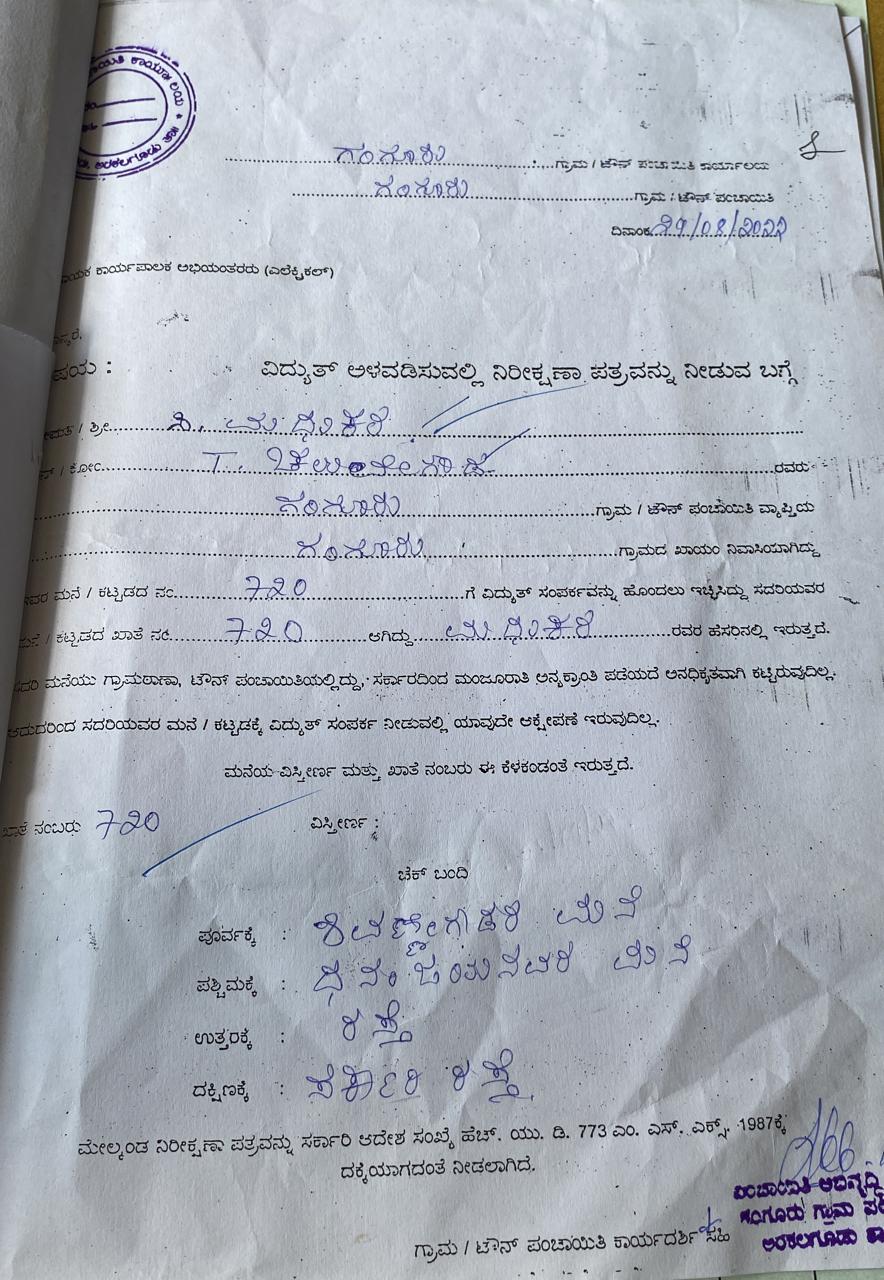 ಗಂಗೂರು ಗ್ರಾಮ / ಟೌನ್ ಪಂಚಾಯಿತಿ ಕಾರ್ಯಾಲಯ
ಗಂಗೂರು ಗ್ರಾಮ / ಟೌನ್ ಪಂಚಾಯಿತಿ
ದಿನಾಂಕ 29/08/2022
ಕಾರ್ಯಪಾಲಕ ಅಭಿಯಂತರರು (ಎಲೆಕ್ಟ್ರಿಕಲ್)
ವಿದ್ಯುತ್ ಅಳವಡಿಸುವಲ್ಲಿ ನಿರೀಕ್ಷಣಾ ಪತ್ರವನ್ನು ನೀಡುವ ಬಗ್ಗೆ
/ ಶ್ರೀ ಮಧುಕರ
/ ಕೋಂ T. ರವರು
ಗಂಗೂರು ಗ್ರಾಮ / ಟೌನ್ ಪಂಚಾಯಿತಿ ವ್ಯಾಪ್ತಿಯ
ಗಂಗೂರು ಗ್ರಾಮದ ಖಾಯಂ ನಿವಾಸಿಯಾಗಿದ್ದು
ಮನೆ / ಕಟ್ಟಡದ ನಂ 720 ಗೆ ವಿದ್ಯುತ್ ಸಂಪರ್ಕವನ್ನು ಹೊಂದಲು ಇಚ್ಛಿಸಿದ್ದು ಸದರಿಯವರ
/ ಕಟ್ಟಡದ ಖಾತೆ ನಂ 720 ಆಗಿದ್ದು ಮಧುಕರ ರವರ ಹೆಸರಿನಲ್ಲಿ ಇರುತ್ತದೆ.
ಮನೆಯು ಗ್ರಾಮಠಾಣಾ, ಟೌನ್ ಪಂಚಾಯಿತಿಯಲ್ಲಿದ್ದು, ಸರ್ಕಾರದಿಂದ ಮಂಜೂರಾತಿ ಅನ್ಯಕ್ರಾಂತಿ ಪಡೆಯದೆ ಅನಧಿಕೃತವಾಗಿ ಕಟ್ಟಿರುವುದಿಲ್ಲ.
ಸದರಿಯವರ ಮನೆ / ಕಟ್ಟಡಕ್ಕೆ ವಿದ್ಯುತ್ ಸಂಪರ್ಕ ನೀಡುವಲ್ಲಿ ಯಾವುದೇ ಆಕ್ಷೇಪಣೆ ಇರುವುದಿಲ್ಲ.
ಮನೆಯ ವಿಸ್ತೀರ್ಣ ಮತ್ತು ಖಾತೆ ನಂಬರು ಈ ಕೆಳಕಂಡಂತೆ ಇರುತ್ತದೆ.
ಖಾತೆ ನಂಬರು 720 ವಿಸ್ತೀರ್ಣ :
ಚೆಕ್ ಬಂದಿ
ಪೂರ್ವಕ್ಕೆ : ಶಿವಣ್ಣೇಗೌಡರ ಮನೆ
ಪಶ್ಚಿಮಕ್ಕೆ : ಧನಂಜಯನವರ ಮನೆ
ಉತ್ತರಕ್ಕೆ : ರಸ್ತೆ
ದಕ್ಷಿಣಕ್ಕೆ : ಸರ್ಕಾರಿ ರಸ್ತೆ
ಮೇಲ್ಕಂಡ ನಿರೀಕ್ಷಣಾ ಪತ್ರವನ್ನು ಸರ್ಕಾರಿ ಆದೇಶ ಸಂಖ್ಯೆ ಹೆಚ್. ಯು. ಡಿ. 773 ಎಂ. ಎಸ್. ಎಕ್ಸ್. 1987ಕ್ಕೆ
ದಕ್ಕೆಯಾಗದಂತೆ ನೀಡಲಾಗಿದೆ.
ಗಂಗೂರು ಗ್ರಾಮ
ಅರಕಲಗೂಡು
ಗ್ರಾಮ / ಟೌನ್ ಪಂಚಾಯಿತಿ ಕಾರ್ಯದರ್ಶಿ ಸಹಿ